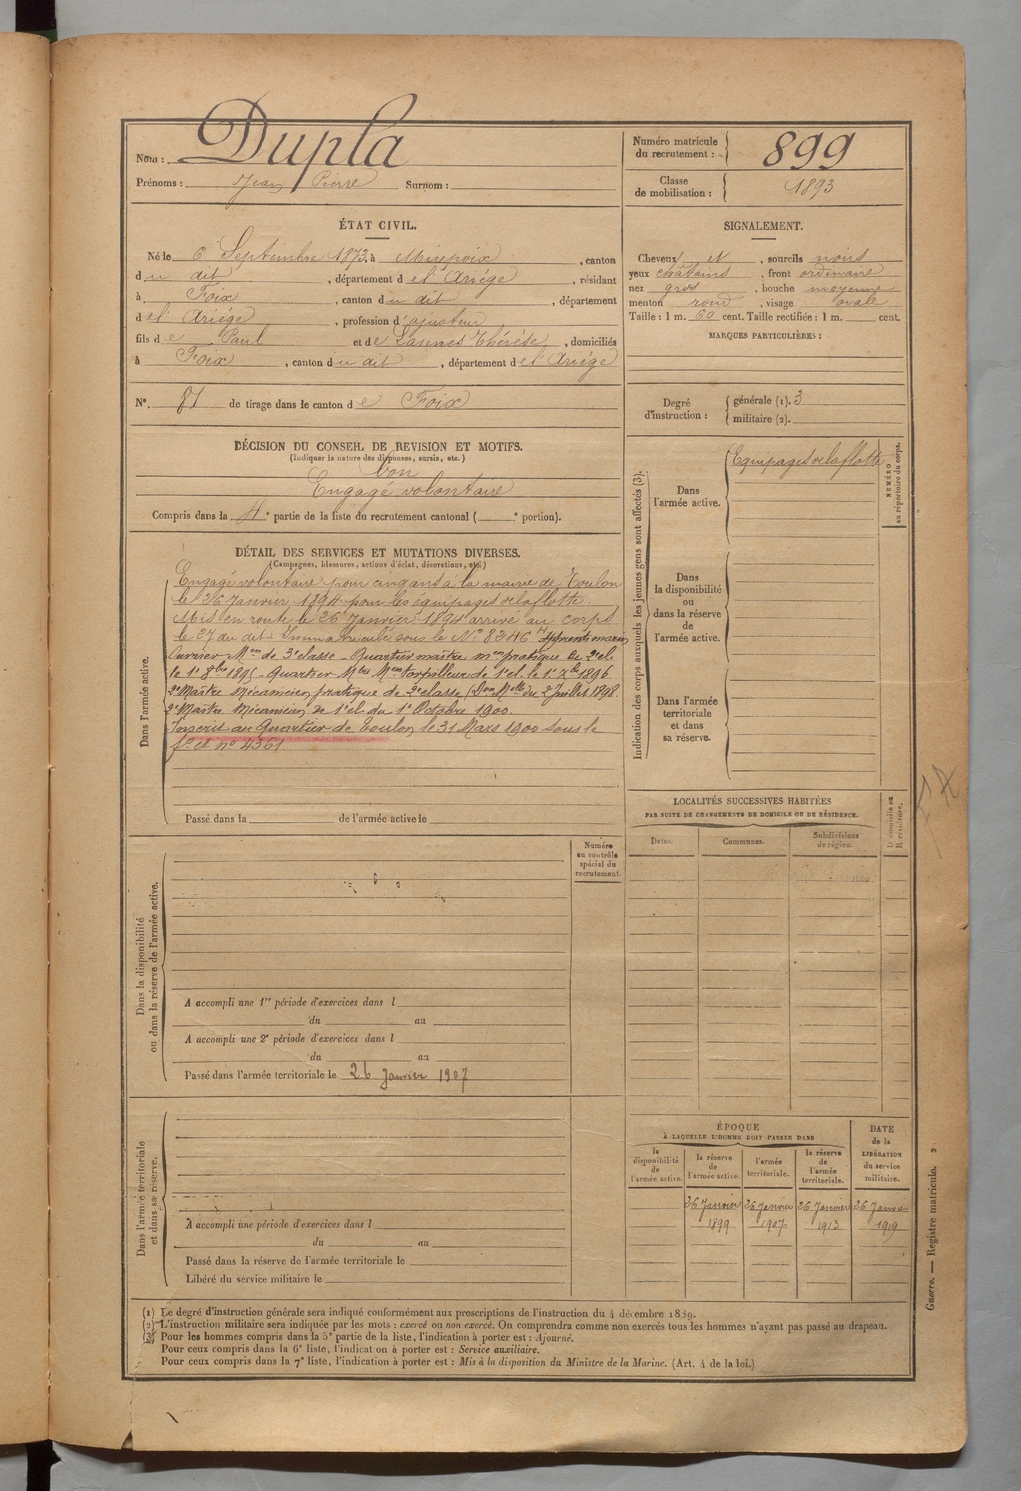 Nom : Dupla
Prénoms : Jean Pierre Surnom :
Numéro matricule du recrutement : 899
Classe de mobilisation : 1893
ÉTAT CIVIL.
Né le 6 Septembre 1873, à Mirepoix, canton
du dit, département de l'Ariége, résidant
à Foix, canton du dit, département
de l'Ariége, profession d'ajusteur
fils de Paul et de Lannes Thérése, domiciliés
à Foix, canton du dit, département de l'Ariége
N°. 81 de tirage dans le canton de Foix
SIGNALEMENT.
Cheveux et, sourcils noirs
yeux châtains, front ordinaire
nez gros, bouche moyenne
menton rond, visage ovale
Taille : 1 m. 60 cent. Taille rectifiée : 1 m. cent.
MARQUES PARTICULIÈRES :
Degré d'instruction : générale (1). 3
militaire (2).
DÉCISION DU CONSEIL DE REVISION ET MOTIFS.
(Indiquer la nature des dispenses, sursis, etc.)
bon
Engagé volontaire
Compris dans la 4e partie de la liste du recrutement cantonal ( e portion).
DÉTAIL DES SERVICES ET MUTATIONS DIVERSES.
(Campagnes, blessures, actions d'éclat, décorations, etc.)
Dans l'armée active.
Engagé volontaire pour cinq ans à la mairie de Toulon
le 26 Janvier 1894 pour les équipages de la flotte.
Mis en route le 26 Janvier 1894 arrivé au corps
le 27 du dit Immatriculé sous le N° 8346 Apprenti marin
Ouvrier Men de 3e classe - Quartier maître men pratique de 2e cl.
le 1er 8bre 1895 - Quartier Mtre Men torpilleur de 1e cl. le 1er Xbre 1896
2e Maître Mécanicien pratique de 2e classe (Don Melle du 2 Juillet 1898.
2e Maître Mécanicien de 1e cl du 1er Octobre 1900.
Inscrit au Quartier de Toulon le 31 Mars 1900 sous le
fo et n° 4361
Passé dans la de l'armée active le
Indication des corps auxquels les jeunes gens sont affectés (3).
Dans l'armée active.
Equipages de la flotte
NUMÉRO au répertoire du corps.
Dans la disponibilité ou dans la réserve de l'armée active.
Dans l'armée territoriale et dans sa réserve.
LOCALITÉS SUCCESSIVES HABITÉES
PAR SUITE DE CHANGEMENTS DE DOMICILE OU DE RÉSIDENCE.
Dates. Communes. Subdivisions de région. D. domicile ou R. résidence.
Dans la disponibilité ou dans la réserve de l'armée active.
Numéro au contrôle spécial du recrutement.
A accompli une 1re période d'exercices dans l
du au
A accompli une 2e période d'exercices dans l
du au
Passé dans l'armée territoriale le 26 Janvier 1907
Dans l'armée territoriale et dans sa réserve.
A accompli une période d'exercices dans l
du au
Passé dans la réserve de l'armée territoriale le
Libéré du service militaire le
ÉPOQUE
À LAQUELLE L'HOMME DOIT PASSER DANS
la disponibilité de l'armée active.
la réserve de l'armée active.
l'armée territoriale.
la réserve de l'armée territoriale.
DATE de la LIBÉRATION du service militaire.
26 Janvier 26 Janvier 26 Janvier 26 Janvier
1899 1907 1913 1919
Guerre. — Registre matricule. 2
(1) Le degré d'instruction générale sera indiqué conformément aux prescriptions de l'instruction du 4 décembre 1889.
(2) L'instruction militaire sera indiquée par les mots : exercé ou non exercé. On comprendra comme non exercés tous les hommes n'ayant pas passé au drapeau.
(3) Pour les hommes compris dans la 5e partie de la liste, l'indication à porter est : Ajourné.
Pour ceux compris dans la 6e liste, l'indication à porter est : Service auxiliaire.
Pour ceux compris dans la 7e liste, l'indication à porter est : Mis à la disposition du Ministre de la Marine. (Art. 4 de la loi.)